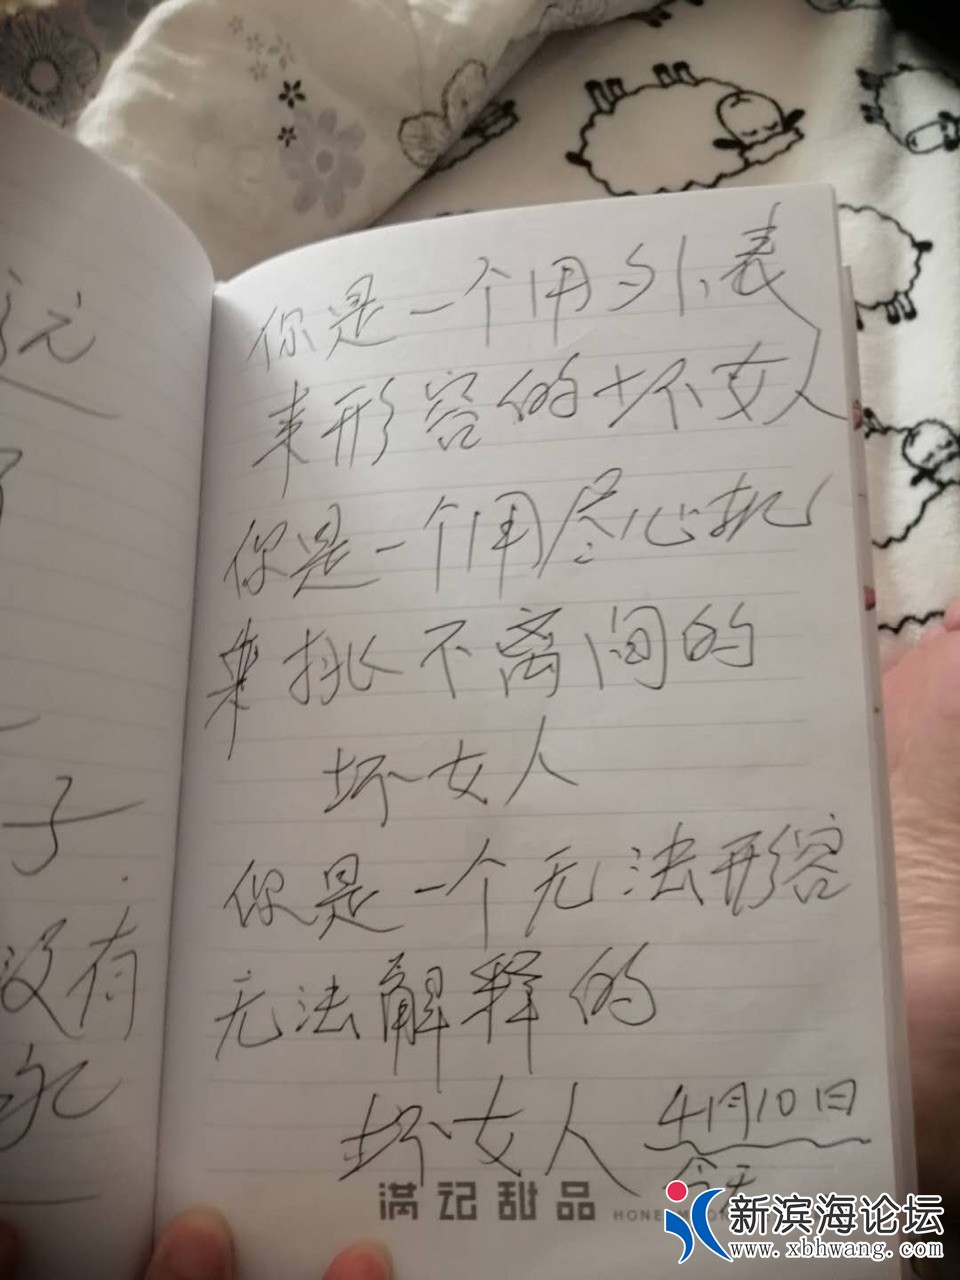 远
子
没有
你是一个用外表
来形容的坏女人
你是一个用尽心机
来挑不离间的
坏女人
你是一个无法形容
无法解释的
坏女人 4月10日
今天
满记甜品
新滨海论坛
www.xbhwang.com